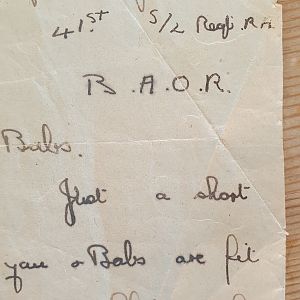 41.st S/L Regt. R.A
B.A.O.R.
Babs.
Just a short
you & Babs are fit